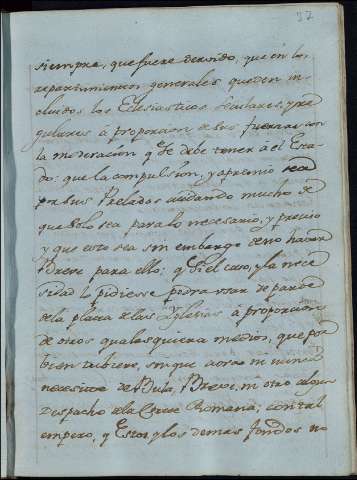 37
siempre, que fuere devido, que en los
repartimientos generales queden in-
cluidos los Eclesiasticos seculares, y re-
gulares à proporcion de sus fuerzas con
la moderacion q̃ se debe tener à el Esta-
do: que la compulsion, y apremio sea
por sus Prelados cuidando mucho de
que solo sea para lo necesario, y preciso
y que esto sea sin embargo de no haver
Breve para ello; q̃ si el caso, y la nece-
sidad lo pidiesse podra usar de parte
de la plata de las Yglesias à proporcion
de otros qualesquiera medios, que por
bien tubiere, sin que aora ni nunca
necesite de Bula, Breve, ni otro algun
Despacho de la Corte Romana; con tal
empero, q̃ estos, y los demas fondos no